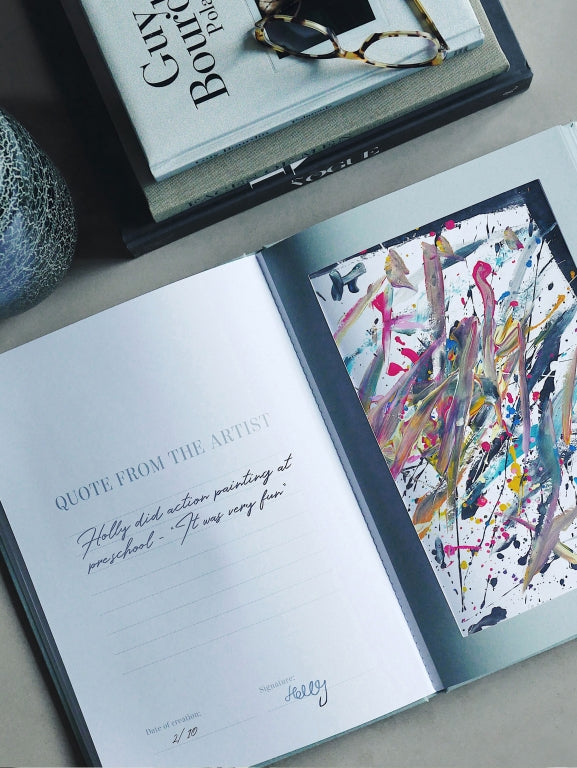 Guy
Bourd
Pola
VOGUE
QUOTE FROM THE ARTIST
Holly did action painting at
preschool - "It was very fun"
Date of creation:
2/10
Signature:
Holly